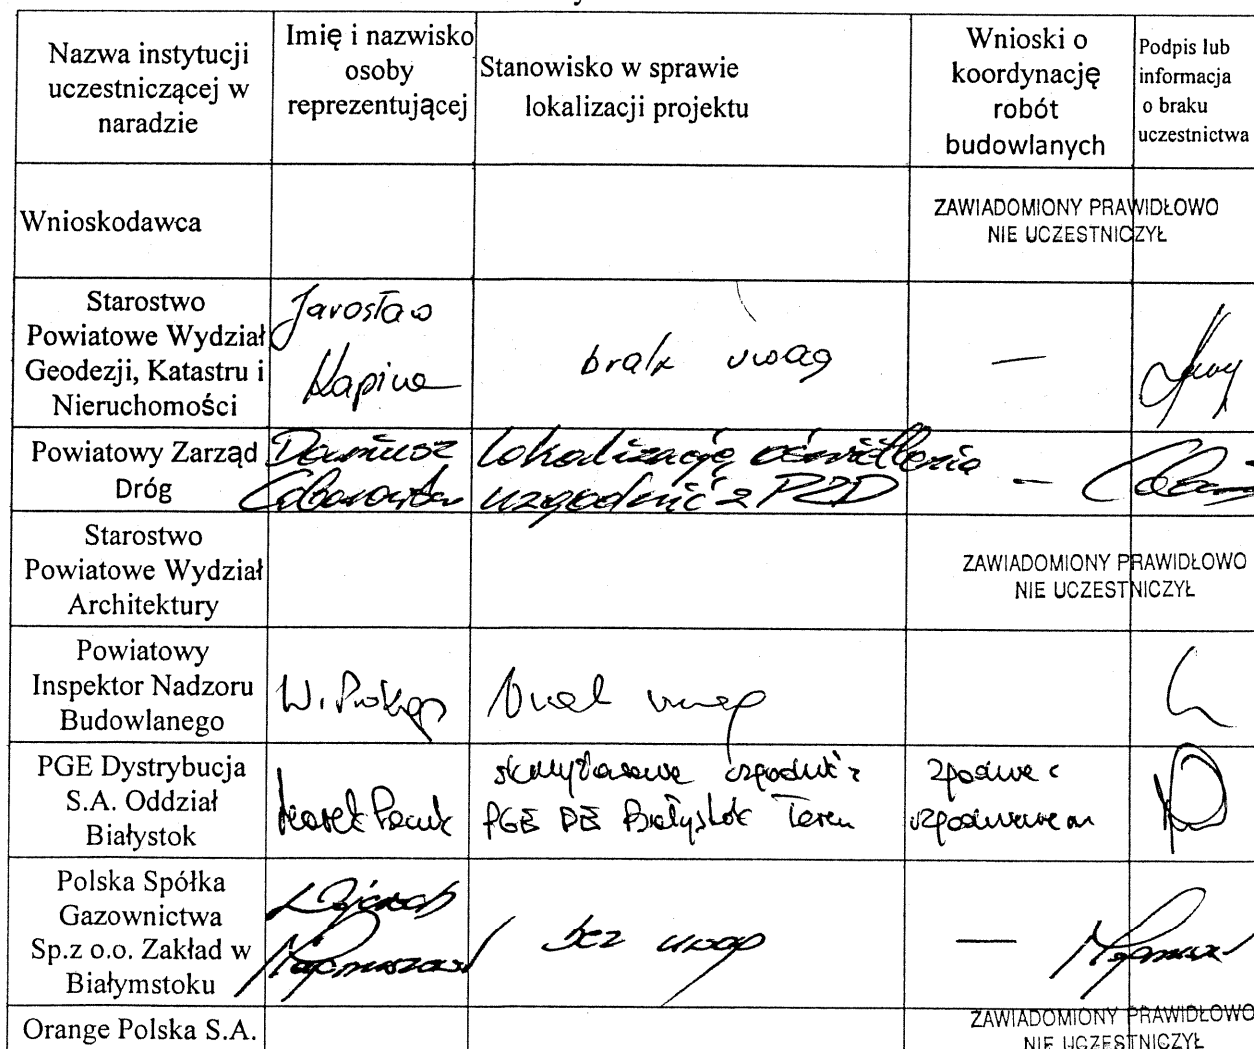 Nazwa instytucji
uczestniczącej w
naradzie
Imię i nazwisko
osoby
reprezentującej
Stanowisko w sprawie
lokalizacji projektu
Wnioski o
koordynację
robót
budowlanych
Podpis lub
informacja
o braku
uczestnictwa
Wnioskodawca
ZAWIADOMIONY PRAWIDŁOWO
NIE UCZESTNICZYŁ
Starostwo
Powiatowe Wydział
Geodezji, Katastru i
Nieruchomości
Jarosław
brak uwag
—
Powiatowy Zarząd
Dróg
Dariusz
lokalizację oświetlenia
uzgodnić z PZD
—
Starostwo
Powiatowe Wydział
Architektury
ZAWIADOMIONY PRAWIDŁOWO
NIE UCZESTNICZYŁ
Powiatowy
Inspektor Nadzoru
Budowlanego
W. Prokop
brak uwag
PGE Dystrybucja
S.A. Oddział
Białystok
Marek
skrzyżowanie uzgodnić z
PGE RE Białystok Teren
zgodnie z
uzgodnieniem
Polska Spółka
Gazownictwa
Sp.z o.o. Zakład w
Białymstoku
bez uwag
—
Orange Polska S.A.
ZAWIADOMIONY PRAWIDŁOWO
NIE UCZESTNICZYŁ